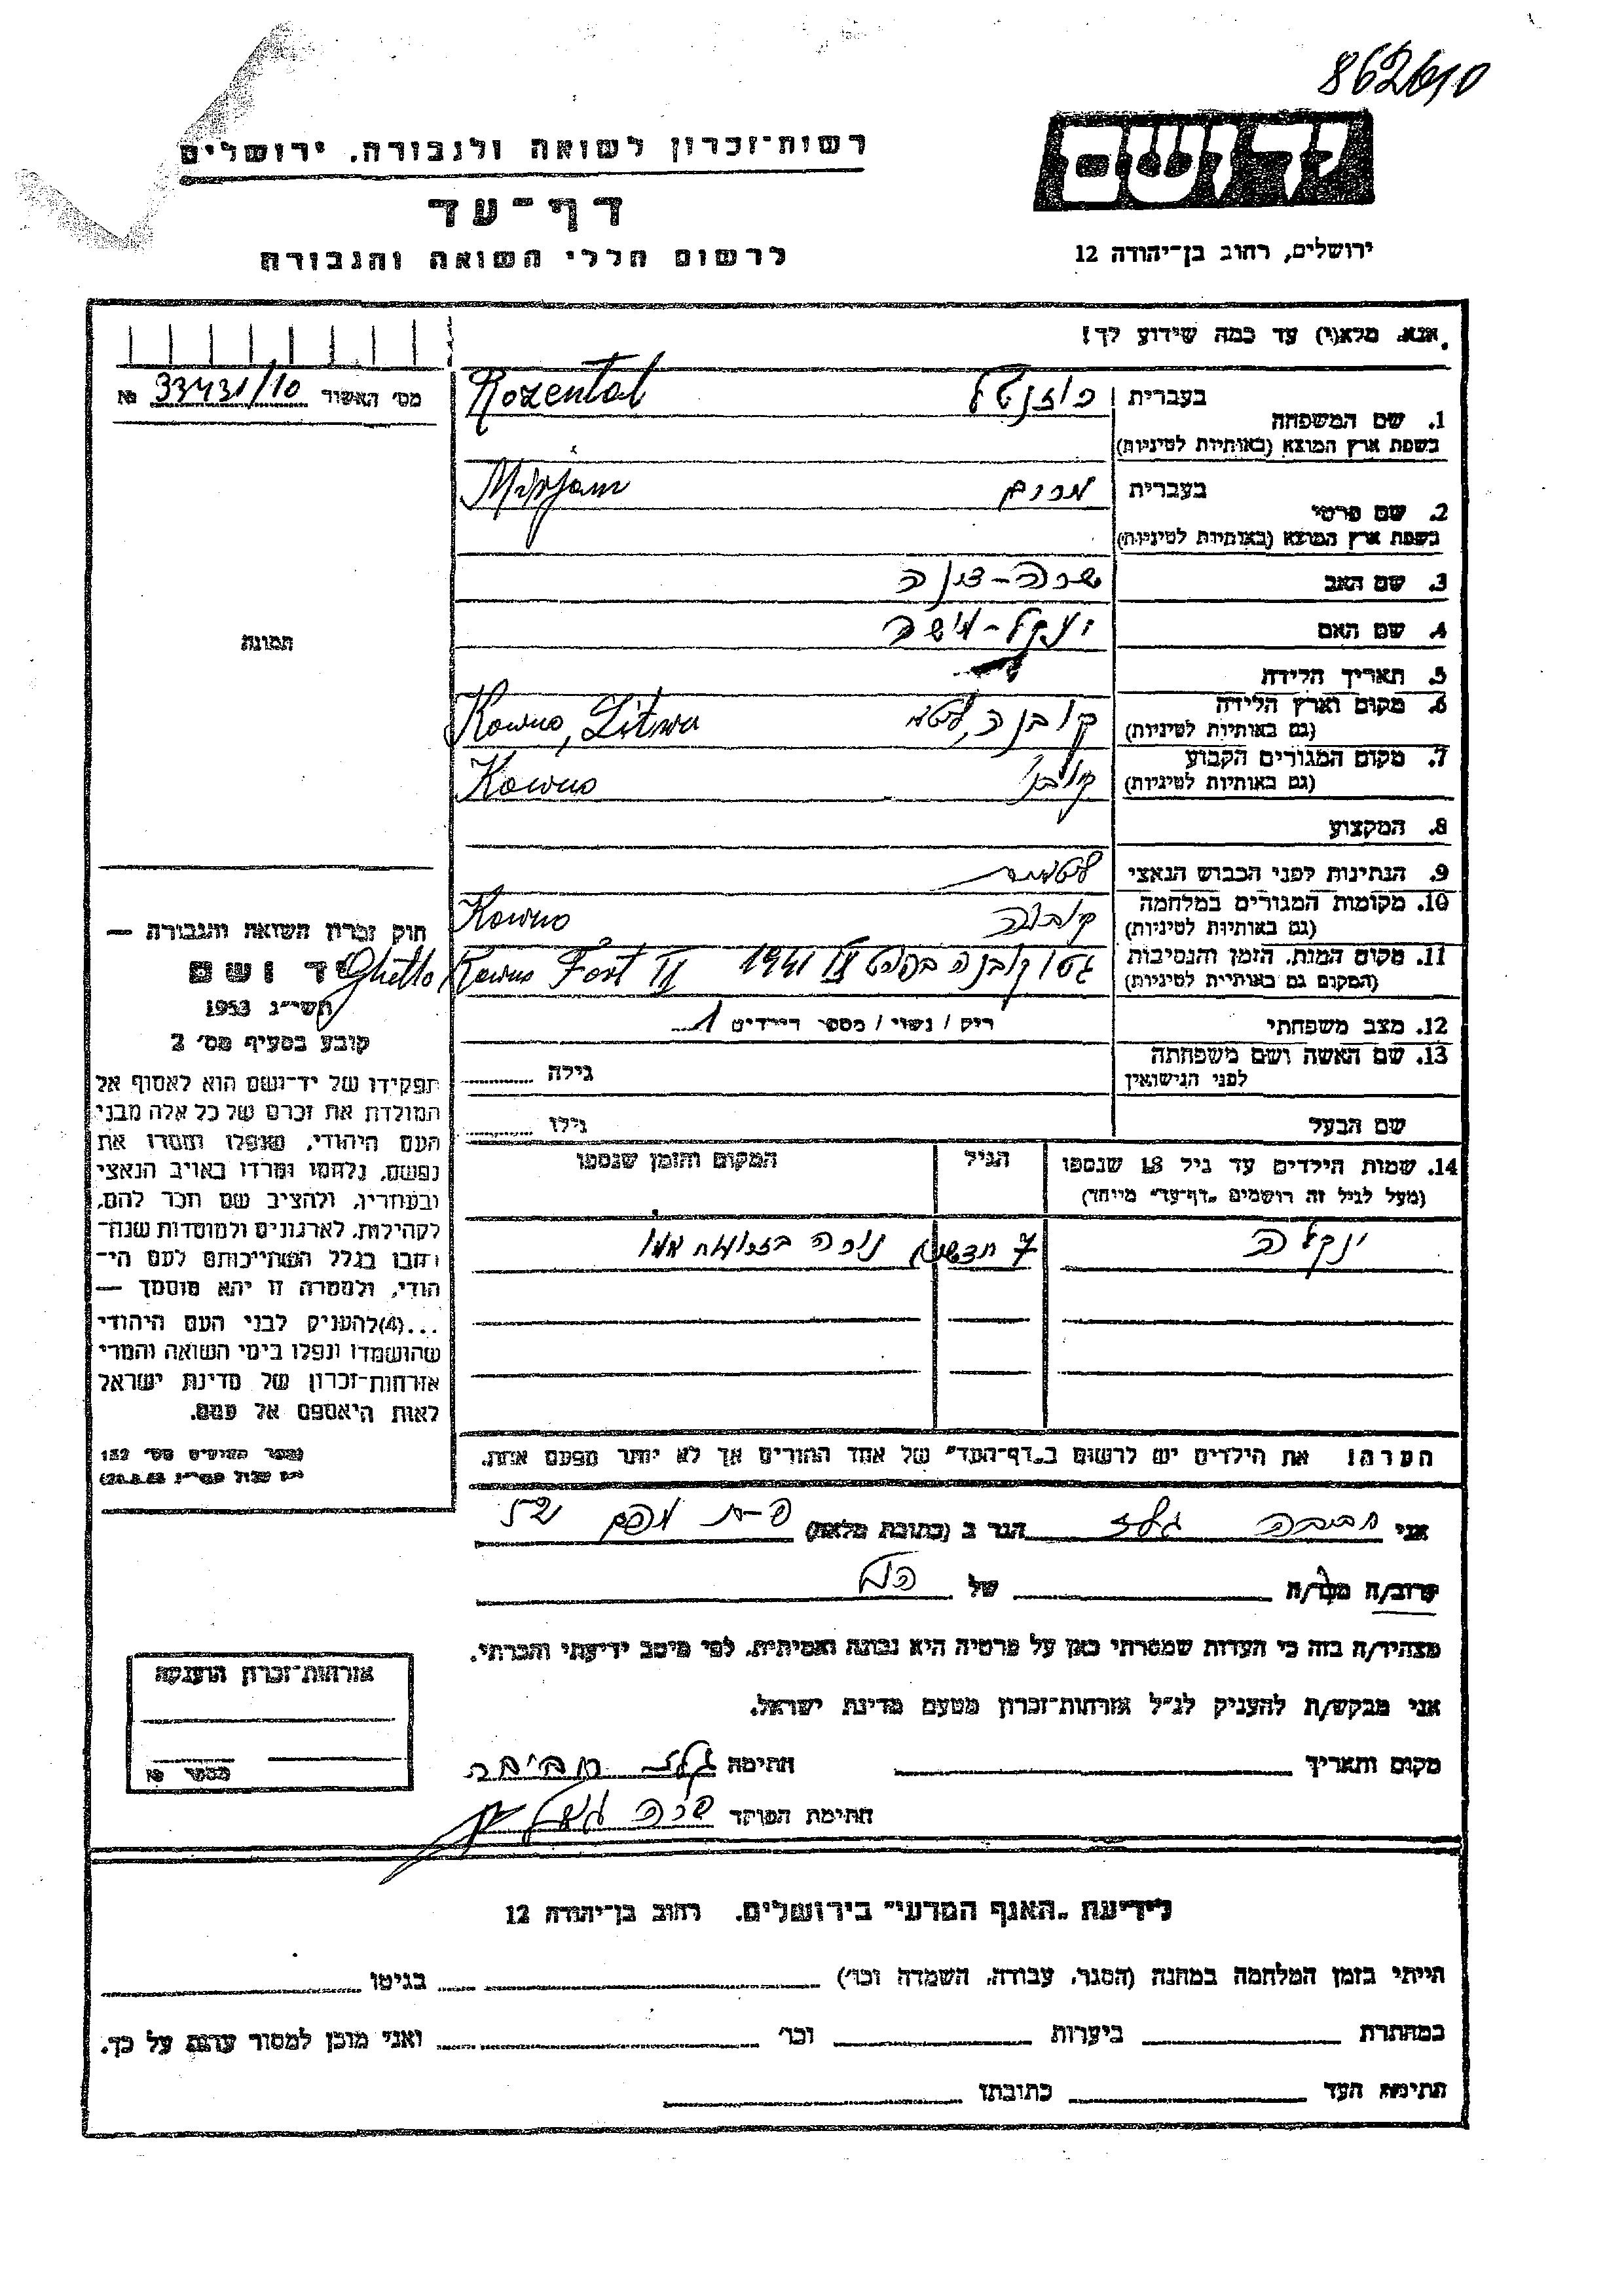 862610
רשות־זכרון לשואה ולגבורה, ירושלים
יד ושם
דף־עד
לרשום חללי השואה והגבורה
ירושלים, רחוב בן־יהודה 12
אנא, מלא(י) עד כמה שידוע לך!
מס׳ האשור 33431/10 №
1. שם המשפחה
בעברית רוזנטל Rozental
בשפת ארץ המוצא (באותיות לטיניות)
2. שם פרטי
בעברית מרים Mirjam
בשפת ארץ המוצא (באותיות לטיניות)
3. שם האב
4. שם האם
תמונה
5. תאריך הלידה
6. מקום וארץ הלידה קובנה, ליטא Kowno, Litwa
(גם באותיות לטיניות)
7. מקום המגורים הקבוע קובנה Kowno
(גם באותיות לטיניות)
8. המקצוע
9. הנתינות לפני הכבוש הנאצי ליטאית
10. מקומות המגורים במלחמה קובנה Kowno
(גם באותיות לטיניות)
11. מקום המות, הזמן והנסיבות גטו קובנה בפורט IX 1941 Ghetto Kowno Fort IX
(המקום גם באותיות לטיניות)
12. מצב משפחתי רוק / נשוי / מספר הילדים 1
13. שם האשה ושם משפחתה
לפני הנישואין
גילה
שם הבעל גילו
14. שמות הילדים עד גיל 18 שנספו הגיל המקום והזמן שנספו
(מעל לגיל זה רושמים „דף־עד״ מיוחד)
ינקלה 7 חדשים
הערה! את הילדים יש לרשום ב„דף־העד״ של אחד ההורים אך לא יותר מפעם אחת.
חוק זכרון השואה והגבורה —
יד ושם
תשי״ג 1953
קובע בסעיף מס׳ 2
תפקידו של יד־ושם הוא לאסוף אל
המולדת את זכרם של כל אלה מבני
העם היהודי, שנפלו ומסרו את
נפשם, נלחמו ומרדו באויב הנאצי
ובעוזריו, ולהציב שם וזכר להם,
לקהילות, לארגונים ולמוסדות שנח־
רבו בגלל השתייכותם לעם הי־
הודי, ולמטרה זו יהא מוסמך —
...(4)להעניק לבני העם היהודי
שהושמדו ונפלו בימי השואה והמרי
אזרחות־זכרון של מדינת ישראל
לאות היאספם אל עמם.
(ספר החוקים מס׳ 132
אני חביבה גלז הגר ב (כתובת מלאה)
קרוב/ה מכר/ה של
מצהיר/ה בזה כי העדות שמסרתי כאן על פרטיה היא נכונה ואמיתית, לפי מיטב ידיעתי והכרתי.
אני מבקש/ת להעניק לנ״ל אזרחות־זכרון מטעם מדינת ישראל.
מקום ותאריך חתימה גלז חביבה
חתימת הפוקד שרה
אזרחות־זכרון הוענקה
מספר №
לידיעת „האגף המדעי״ בירושלים, רחוב בן־יהודה 12
הייתי בזמן המלחמה במחנה (הסגר, עבודה, השמדה וכו׳) בגיטו
במחתרת ביערות וכו׳ ואני מוכן למסור עדות על כך.
חתימת העד כתובתו